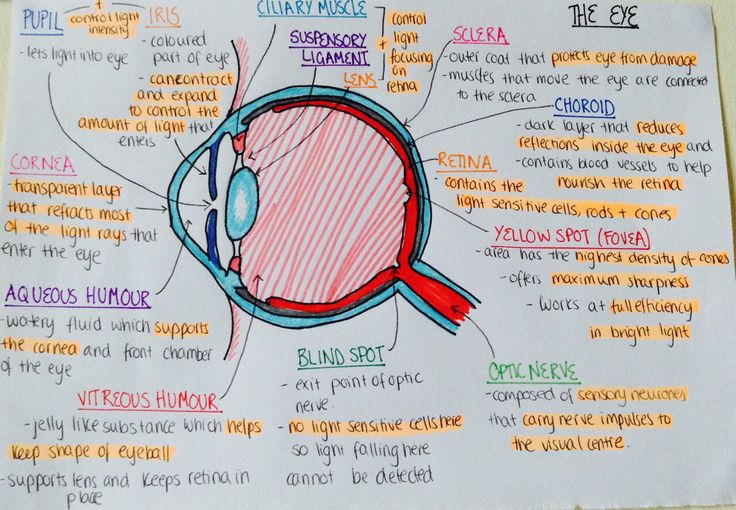 THE EYE
PUPIL
+
control light
intensity
- lets light into eye
IRIS
- coloured
part of eye
- can contract
and expand
to control the
amount of light that
enters
CILIARY MUSCLE
SUSPENSORY
LIGAMENT
LENS
+
control
light
focusing
on
retina
SCLERA
- outer coat that protects eye from damage
- muscles that move the eye are connected
to the sclera
CHOROID
- dark layer that reduces
reflections inside the eye and
- contains blood vessels to help
nourish the retina
RETINA
- contains the
light sensitive cells, rods + cones
YELLOW SPOT (FOVEA)
- area has the highest density of cones
- offers maximum sharpness
- works at full efficiency
in bright light
CORNEA
- transparent layer
that refracts most
of the light rays that
enter the eye
AQUEOUS HUMOUR
- watery fluid which supports
the cornea and front chamber
of the eye
VITREOUS HUMOUR
- jelly like substance which helps
keep shape of eyeball
- supports lens and keeps retina in
place
BLIND SPOT
- exit point of optic
nerve.
- no light sensitive cells here
so light falling here
cannot be detected
OPTIC NERVE
- composed of sensory neurones
that carry nerve impulses to
the visual centre.